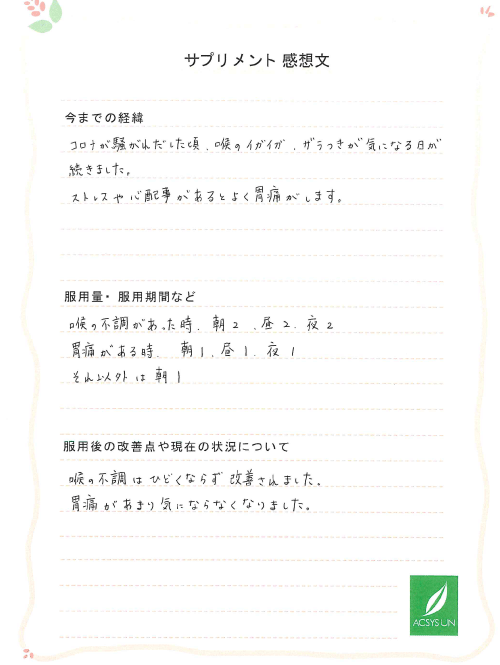 サプリメント 感想文
今までの経緯
コロナが騒がれだした頃、喉のイガイガ、ザラつきが気になる日が
続きました。
ストレスや心配事があるとよく胃痛がします。
服用量・服用期間など
喉の不調があった時、朝2、昼2、夜2
胃痛がある時、朝1、昼1、夜1
それ以外は朝1
服用後の改善点や現在の状況について
喉の不調はひどくならず改善されました。
胃痛があまり気にならなくなりました。
ACSYSUN